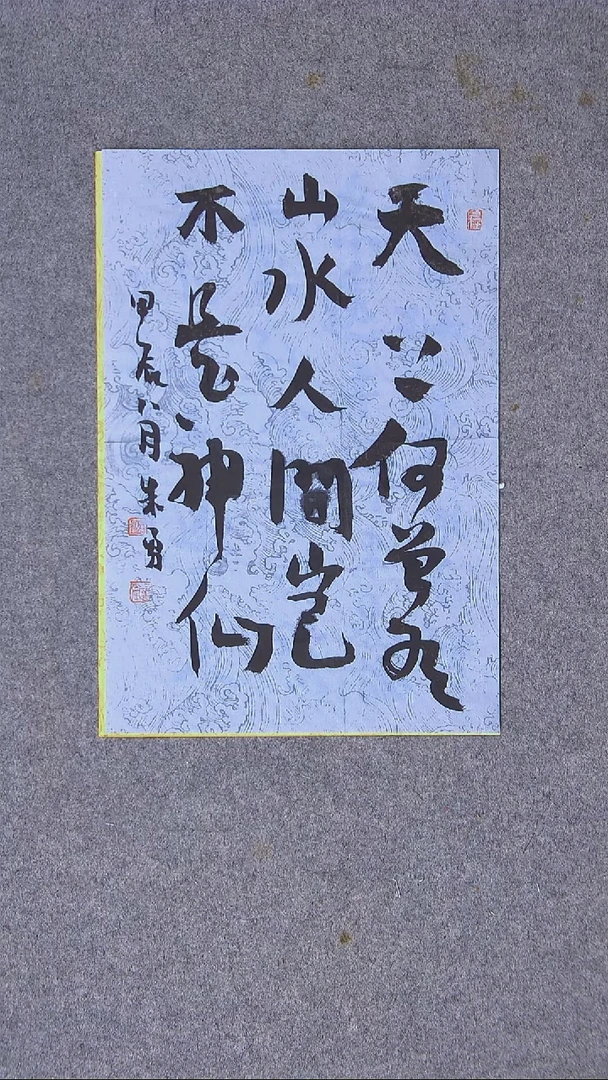 天上何曾有
山水人間岂
不是神仙
甲辰八月朱勇